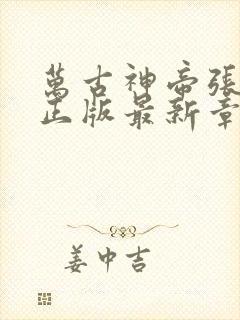 萬古神帝張
正版最新章
姜中吉